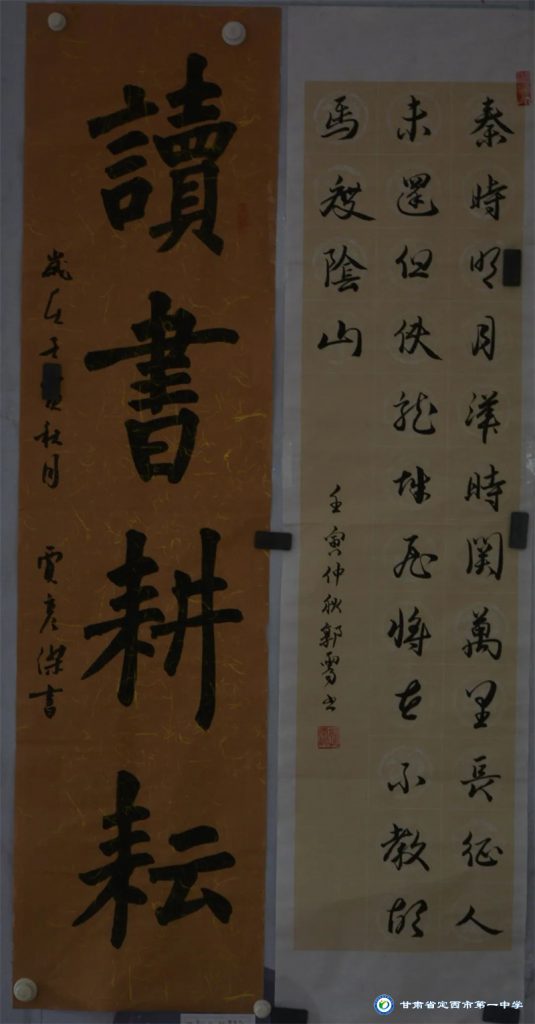 秦時明月漢時關萬里長征人
未還但使龍城飛將在不教胡
馬度陰山
壬寅仲秋郭雪书
讀書耕耘
歲在壬寅秋月 賈彥傑書
甘肃省定西市第一中学